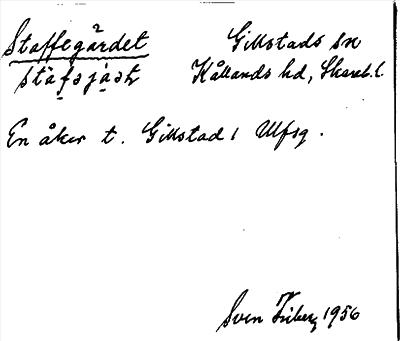 Staffegärdet Gillstads sn
stáfsjást Kållands hd, Skarab.l.
En åker t. Gillstad 1 Ulfsg.
Sven Friberg 1956